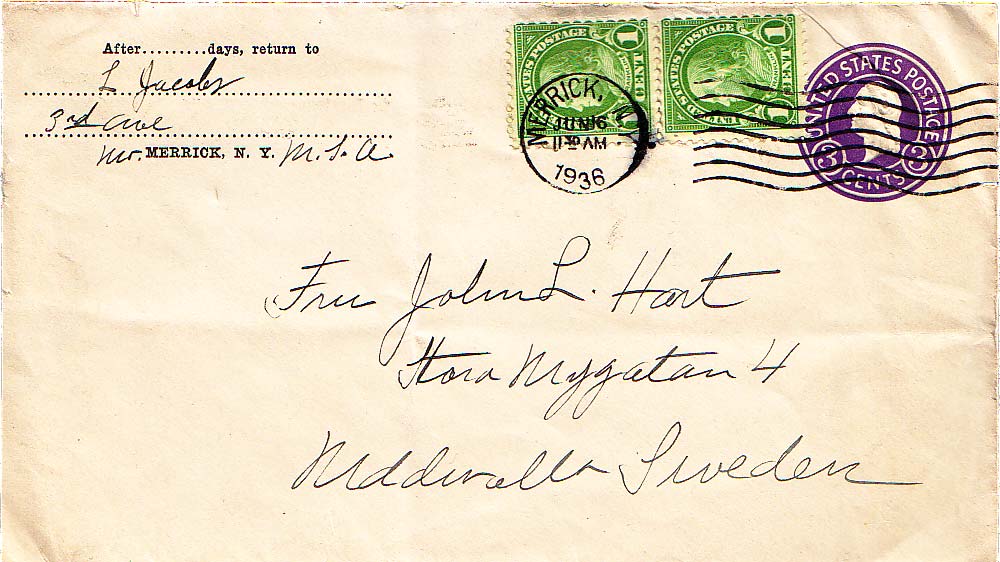 After.........days, return to
L Jacobs
3rd Ave
MERRICK, N. Y. U.S.A.
1 UNITED STATES POSTAGE 1
MERRICK, N
JUN 6
11 30 AM
1936
UNITED STATES POSTAGE
3 CENTS 3
Fru John L. Hart
Stora Nygatan 4
Uddevalla Sweden